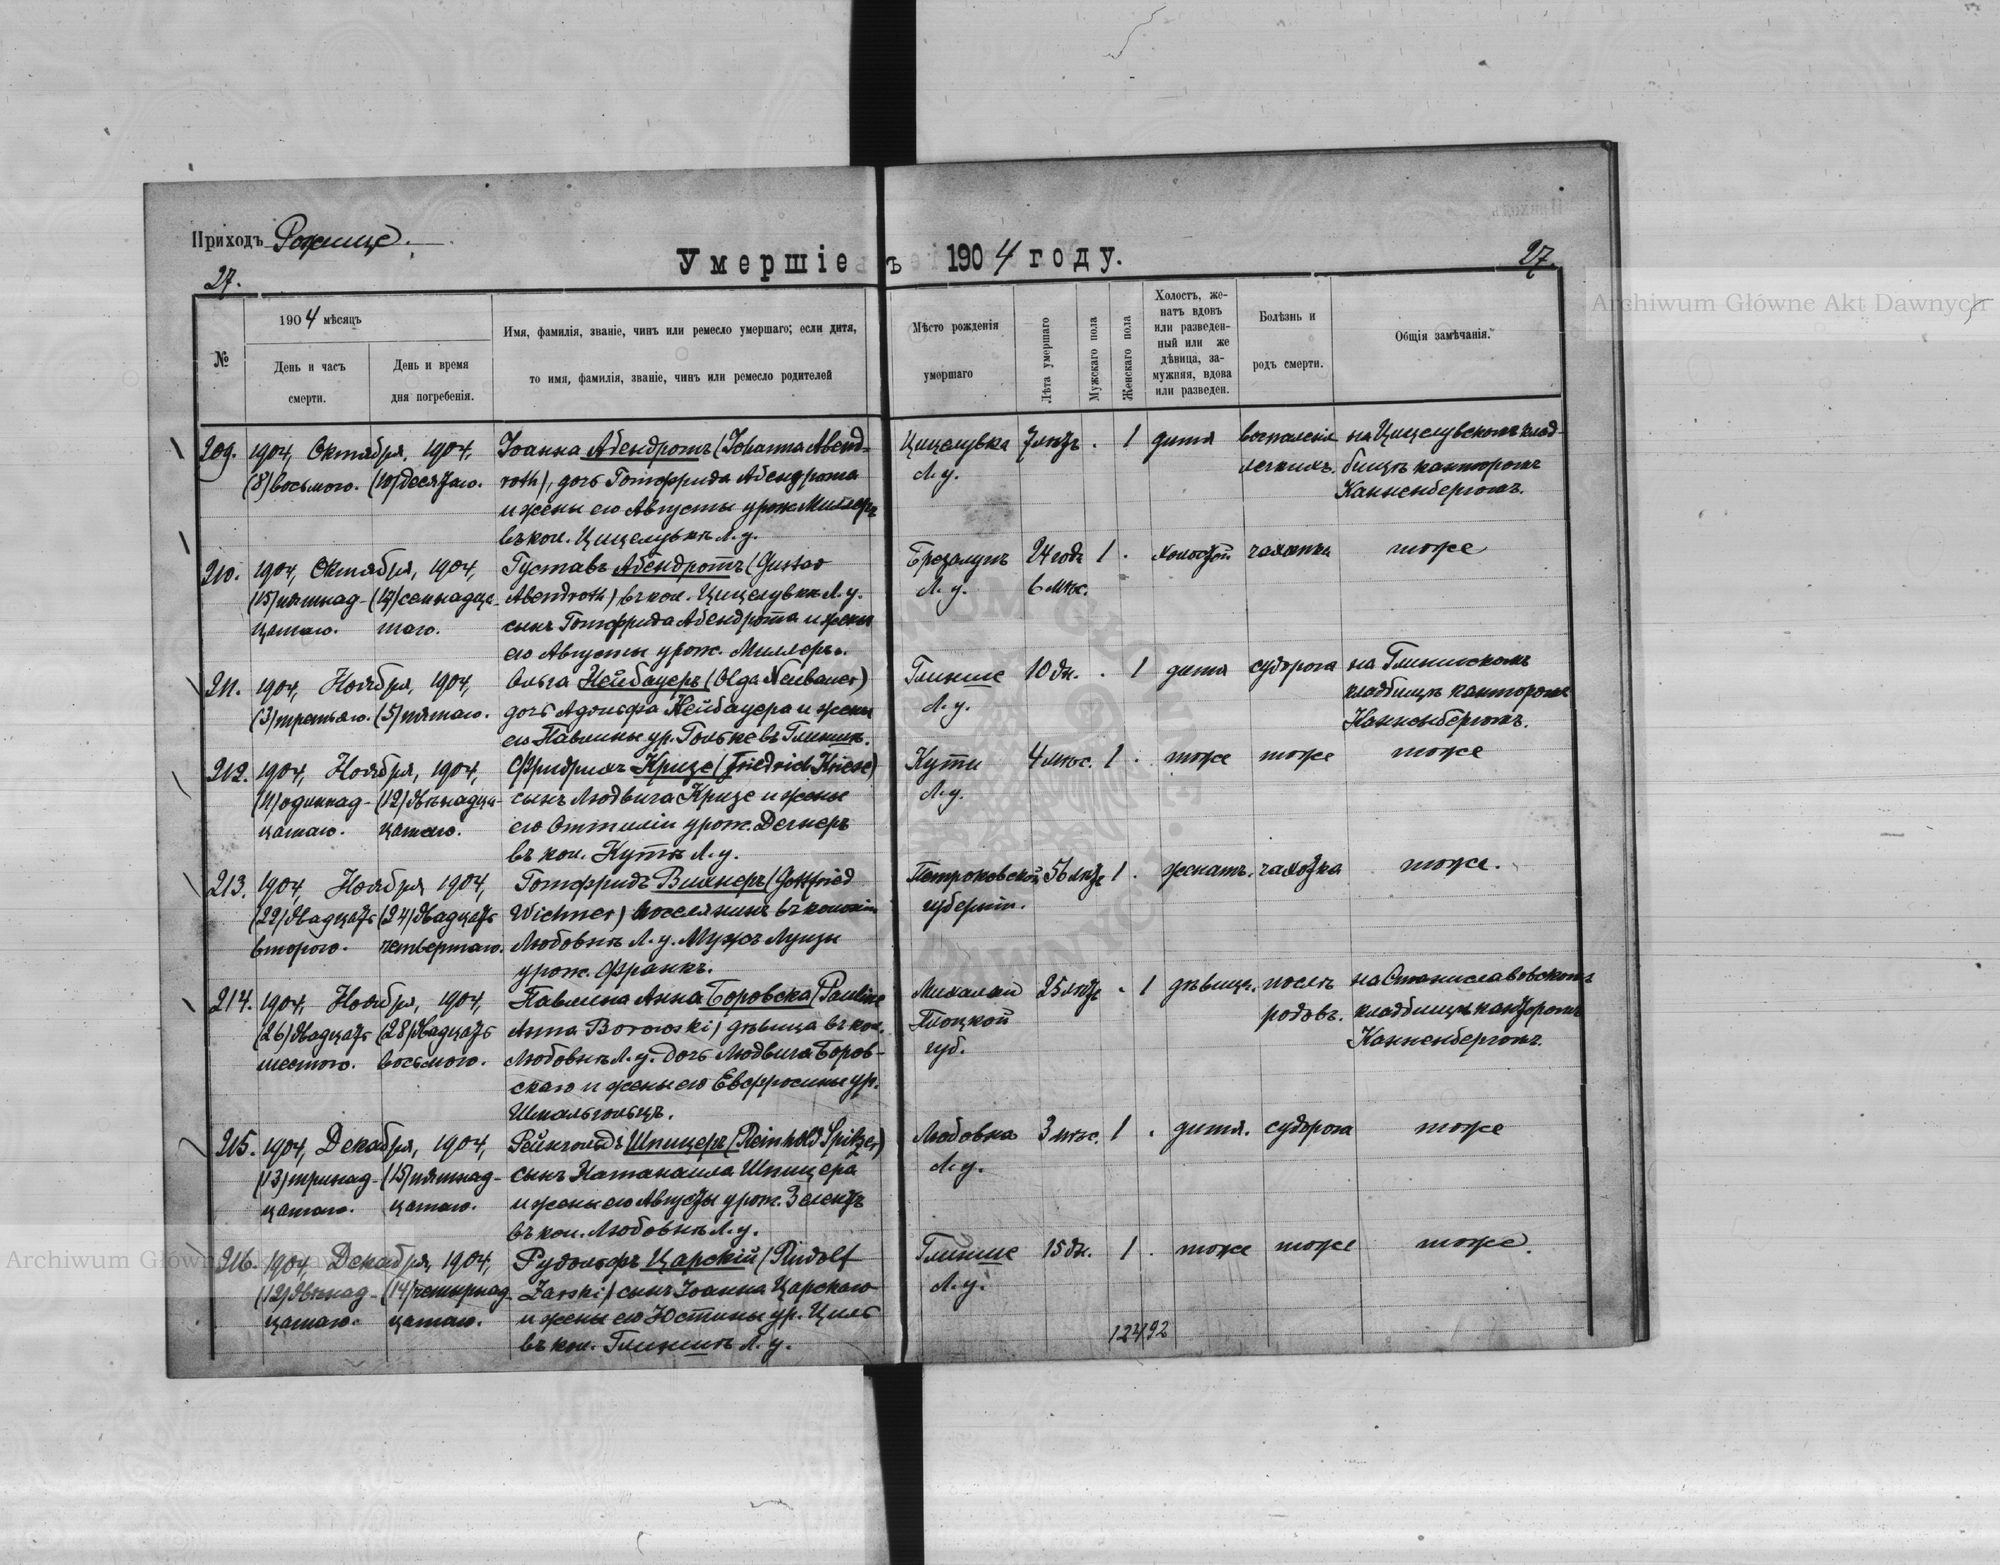 Приходъ Рожище.
Умершіе въ 1904 году.
27.
27.
№
1904 мѣсяцъ
День и часъ смерти.
День и время дня погребенія.
Имя, фамилія, званіе, чинъ или ремесло умершаго; если дитя,
то имя, фамилія, званіе, чинъ или ремесло родителей
Мѣсто рожденія
умершаго
Лѣта умершаго
Мужскаго пола
Женскаго пола
Холостъ, же-
натъ вдовъ
или разведен-
ный или же
дѣвица, за-
мужняя, вдова
или разведен.
Болѣзнь и
родъ смерти.
Общія замѣчанія.
209. 1904, Октября, 1904, Іоанна Абендротъ (Johanna Abend- Цицелувка 7 лѣтъ . 1 дитя воспаленія на Цицелувскомъ клад-
(8) восьмого. (10) десятаго. roth), дочь Готфрида Абендрота Л. у. легкихъ. бищѣ канторомъ
и жены его Августы урож. Миллеръ Канненбергомъ.
въ кол. Цицелувкѣ Л. у.
210. 1904, Октября, 1904, Густавъ Абендротъ (Gustav 24 года 1 . холостой чахотка тоже
(15) пятнад- (17) семнадца- Abendroth) въ кол. Цицелувкѣ Л. у. Л. у. 6 мѣс.
цатаго. таго. сынъ Готфрида Абендрота и жены
его Августы урож. Миллеръ.
211. 1904, Ноября, 1904, Ольга Нейбауеръ (Olga Neubauer) Глинище 10 дн. . 1 дитя судорога на Глинискомъ
(3) третьяго. (5) пятаго. дочь Адольфа Нейбауера и жены Л. у. кладбищѣ канторомъ
его Павлины ур. Гольке въ Глинищѣ. Канненбергомъ.
212. 1904, Ноября, 1904, Фридрихъ Кризе (Friedrich Kriese) Куты 4 мѣс. 1 . тоже тоже тоже
(11) одиннад- (12) двѣнадца- сынъ Людвига Кризе и жены Л. у.
цатаго. цатаго. его Оттиліи урож. Дегнеръ
въ кол. Кутѣ Л. у.
213. 1904, Ноября, 1904, Готфридъ Вихнеръ (Gottfried Петроковской 56 лѣтъ 1 . женатъ. чахотка тоже.
(22) двадцать (24) двадцать Wichner) поселянинъ въ колоніи губерніи.
второго. четвертаго. Любовкѣ Л. у. Мужъ Луизы
урож. Франкъ.
214. 1904, Ноября, 1904, Павлина Анна Боровска (Pauline 25 лѣтъ . 1 дѣвица. послѣ на Станиславовскомъ
(26) двадцать (28) двадцать Anna Borowski) дѣвица въ кол. Плоцкой родовъ. кладбищѣ канторомъ
шестого. восьмого. Любовкѣ Л. у. Дочь Людвига Боров- губ. Канненбергомъ.
скаго и жены его Евфросины ур.
215. 1904, Декабря, 1904, Рейнгольдъ Шпицеръ (Reinhold Spitzer) Любовка 3 мѣс. 1 . дитя. судорога тоже
(13) тринад- (15) пятнад- сынъ Натанаила Шпицера Л. у.
цатаго. цатаго. и жены его Августы урож. Зелентъ
въ кол. Любовкѣ Л. у.
216. 1904, Декабря, 1904, Рудольфъ Царскій (Rudolf Глинище 15 дн. 1 . тоже тоже тоже.
(12) двѣнад- (14) четырнад- Zarski) сынъ Іоанна Царскаго Л. у.
цатаго. цатаго. и жены его Юстины ур. Циль
въ кол. Глинищѣ Л. у.
124/92
Archiwum Główne Akt Dawnych